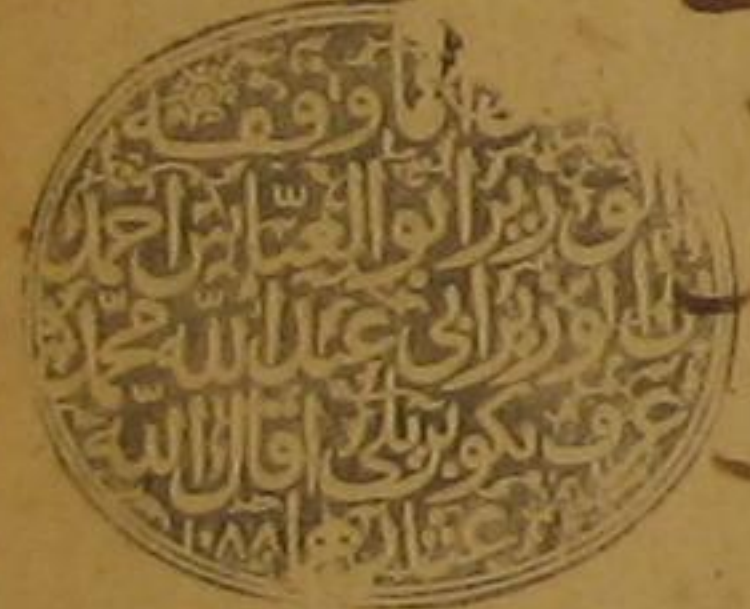 هذا ما وقفه
الوزير ابو العبّاس احمد
بن الوزير ابي عبد اللّه محمّد
عرف بكوبريلي اقال اللّه
عثارهما ١٠٨٨